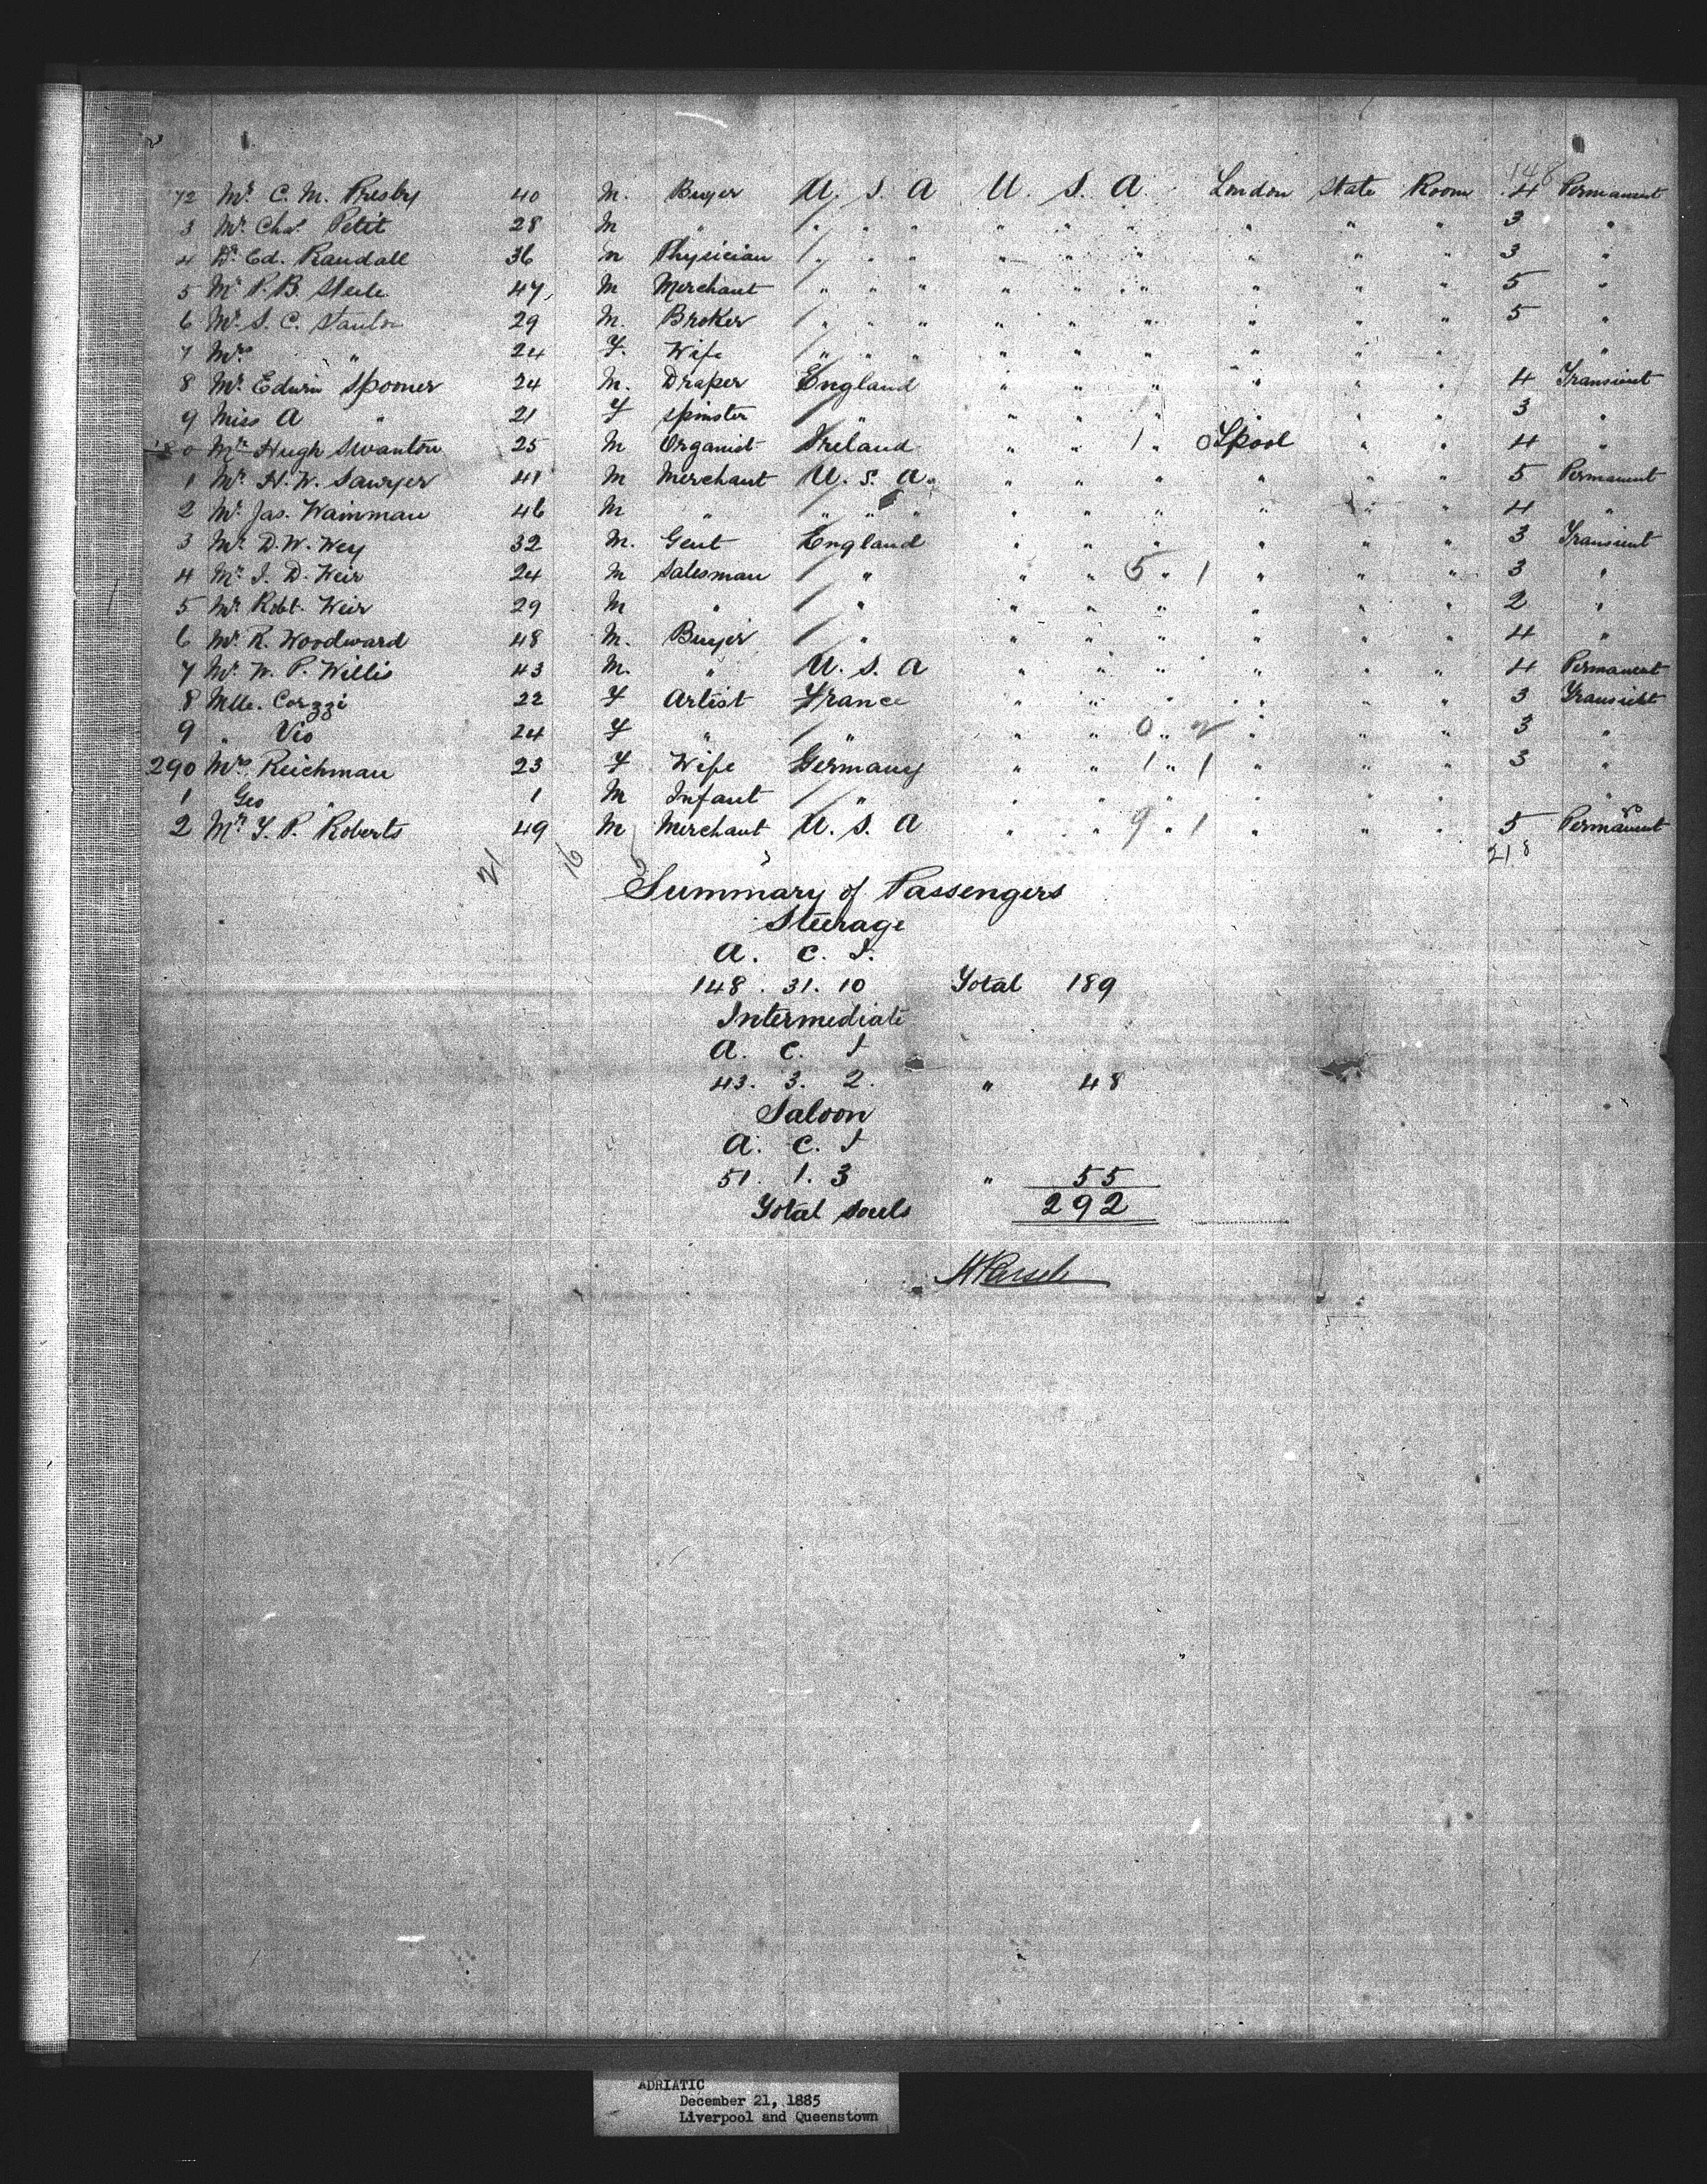 148
72 Mr. C. M. Presby 40 M. Buyer U. S. A U. S. A. London State Room 4 Permanent
3 Mr. Chas. Petit 28 M " " " " " " " " " " 3 "
4 Dr. Ed. Randall 36 m Physician " " " " " " " " " 3 "
5 Mr P. B. Steele 47 M Merchant " " " " " " " " " 5 "
6 Mr. S. C. 29 M. Broker " " " " " " " " " 5 "
7 Mrs " 24 F. Wife " " " " " " " " " "
8 Mr. Edwin Spooner 24 M. Draper England " " " " " " 4 Transient
9 Miss A " 21 F Spinster " " " " " " " 3 "
0 Mr Hugh Swanton 25 M Organist Ireland " " 1 " 0 Lpool " " 4 "
1 Mr. H. W. Sawyer 41 M Merchant U. S. A. " " " " " " 5 Permanent
2 Mr. Jas. Wainman 46 M " " " " " " " " " " 4 "
3 Mr. D. W. Wey 32 M. Gent England " " " " " " 3 Transient
4 Mr. J. D. Weir 24 M Salesman " " " 5 " 1 " " " 3 "
5 Mr. Robt. Weir 29 M " " " " " " " " 2 "
6 Mr. R. Woodward 48 M. Buyer " " " " " " " 4 "
7 Mr. W. P. Willis 43 M. " U. S. A " " " " " " 4 Permanent
8 Mlle. Corzzi 22 F Artist France " " " " " " 3 Transient
9 " Vio 24 F " " " " 0 " 2 " " " 3 "
290 Mrs. Reichman 23 F Wife Germany " " 1 " 1 " " " 3 "
1 Geo " 1 M Infant " " " " " " " "
2 Mr. T. P. Roberts 49 M Merchant U. S. A " " 9 " 1 " " " 5 Permanent
21 16 5 218
Summary of Passengers
Steerage
A. C. I.
148 . 31. 10 Total 189
Intermediate
A. C. I
43. 3. 2. " 48
Saloon
A. C. I
51. 1. 3 " 55
Total Souls 292
ADRIATIC
December 21, 1885
Liverpool and Queenstown